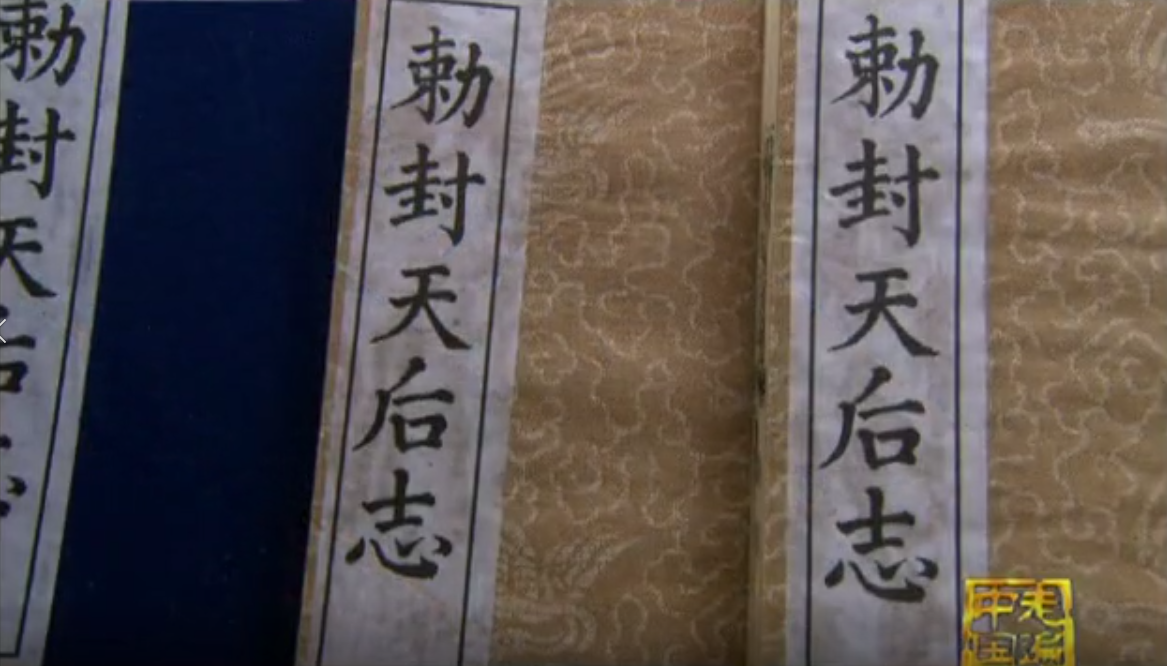 勅封天后志
勅封天后志
勅封天后志
走遍
中国